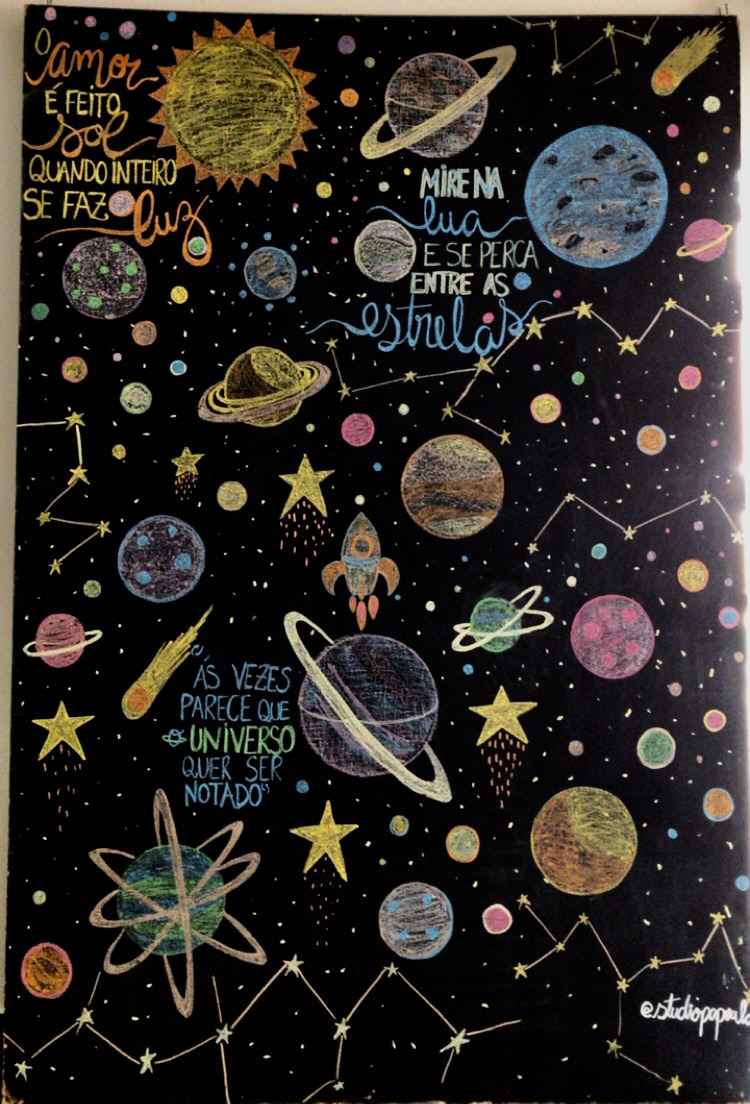 O amor
É FEITO
sol
QUANDO INTEIRO
SE FAZ luz
MIRE NA
lua
E SE PERCA
ENTRE AS
estrelas
"ÁS VEZES
PARECE QUE
O UNIVERSO
QUER SER
NOTADO"
@studiopapoula